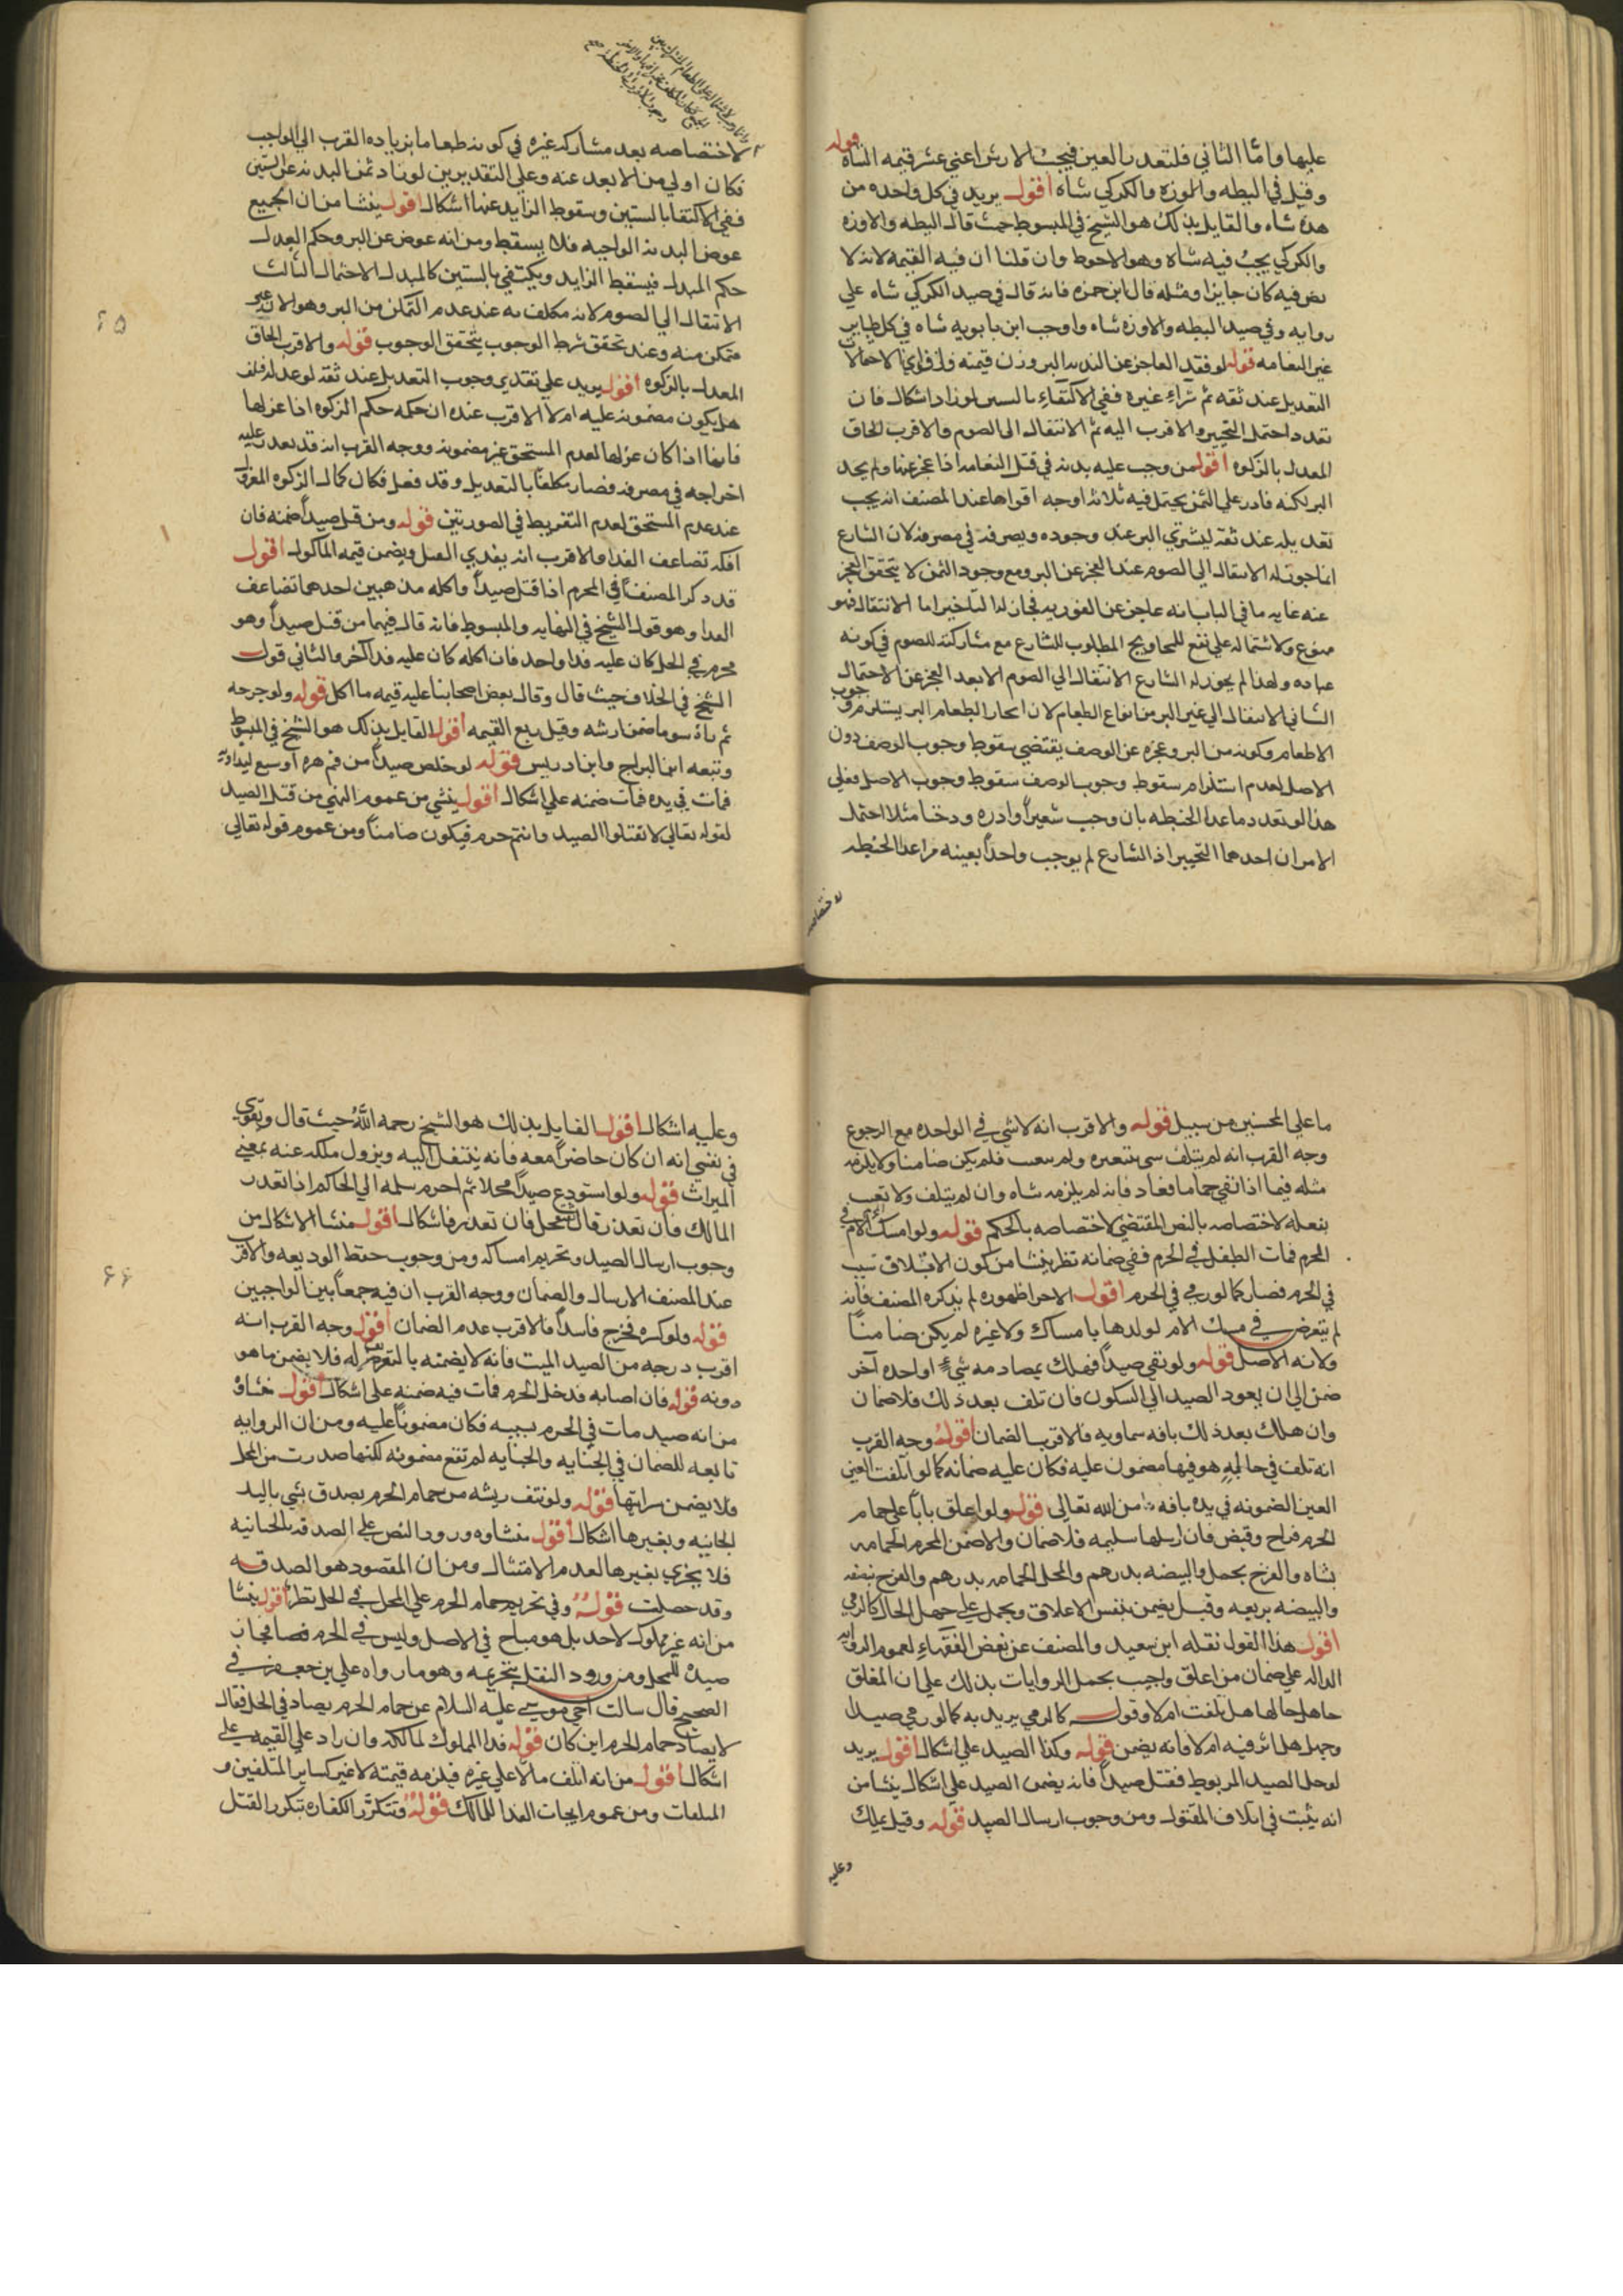 عليها واما الثاني فلتعدد العين فيجب الارش اعني عشر قيمه الشاه قوله
وقيل في البطه والوزه والكركي شاه اقول يريد في كل واحده من
هذه شاه والقايل بذلك هو الشيخ في المبسوط حيث قال البطه والاوزه
والكركي يجب فيه شاه وهو الاحوط وان قلنا ان فيه القيمه لانه لا
نص فيه كان جايزا ومثله قال ابن حمزه فانه قال في صيد الكركي شاه علي
روايه وفي صيد البطه والاوزه شاه واوجب ابن بابويه شاه في كل طاير
غير النعامه قوله لو فقد العاجز عن البدنه البر وزن قيمته واقوي الاحتمالات
التعديل عند ثقه ثم شراء غيره ففي الاكتفاء بالستين لو زاد اشكال فان
تعدد احتمل التخيير والاقرب اليه ثم الانتقال الى الصوم والاقرب الحاق
المعدل بالزكوه اقول من وجب عليه بدنه في قتل النعامه اذا عجز عنها ولم يجد
البر لكنه قادر علي الثمن يحتمل فيه ثلاثه اوجه اقواها عند المصنف انه يجب
تعديله عند ثقه ليشتري البر عند وجوده ويصرفه في مصرفه لان الشارع
انما جوز له الانتقال الي الصوم عند العجز عن البر ومع وجود الثمن لا يتحقق العجز
عنه غايه ما في الباب انه عاجز عن الفوريه فجاز له التاخير اما الانتقال فهو
ممنوع ولاشتماله علي نفع للمحاويج المطلوب للشارع مع مشاركته للصوم في كونه
عباده ولهذا لم يجوز له الشارع الانتقال الي الصوم الا بعد العجز عن الاحتمال
الثاني الانتقال الي غير البر من انواع الطعام لان ايجاب الطعام البر يستلزم وجوب
الاطعام وكونه من البر وعجزه عن الوصف يقتضي سقوط وجوب الوصف دون
الاصل لعدم استلزام سقوط وجوب الوصف سقوط وجوب الاصل فعلي
هذا لو تعدد ما عدا الحنطه بان وجب شعيرا واذره ودخنا مثلا احتمل
الامران احدهما التخيير اذ الشارع لم يوجب واحدا بعينه مما عدا الحنطه
لاختصاصه
لاختصاصه بعد مشاركه غيره في كونه طعاما بزياده القرب الي الواجب
فكان اولي من الابعد عنه وعلي التقديرين لو زاد ثمن البدنه عن الستين
ففي الاكتفا بالستين وسقوط الزايد عنها اشكال اقول ينشا من ان الجميع
عوض البدنه الواجبه فلا يسقط ومن انه عوض عن البر وحكم البدل
حكم المبدل فيسقط الزايد ويكتفي بالستين كالمبدل الاحتمال الثالث
الانتقال الي الصوم لانه مكلف به عند عدم التمكن من البر وهو الان غير
متمكن منه وعند تحقق شرط الوجوب يتحقق الوجوب قوله والاقرب الحاق
المعدل بالزكوه اقول يريد علي تقدير وجوب التعديل عند ثقه لو عدله فتلف
هل يكون مضمونه عليه ام لا الاقرب عنده ان حكمه حكم الزكوه اذا عزلها
فانها اذا كان عزلها لعدم المستحق غير مضمونه ووجه القرب انه قد تعذر عليه
اخراجه في مصرفه فصار مكلفا بالتعديل وقد فعل فكان كمال الزكوه المعزول
عند عدم المستحق لعدم التفريط في الصورتين قوله ومن قتل صيدا ضمنه فان
اكله تضاعف الفدا والاقرب انه يفدي القتل ويضمن قيمه الماكول اقول
قد ذكر المصنف في المحرم اذا قتل صيدا واكله مذهبين احدهما تضاعف
الفدا وهو قول الشيخ في النهايه والمبسوط فانه قال فيهما من قتل صيدا وهو
محرم في الحل كان عليه فدا واحد فان اكله كان عليه فدا آخر والثاني قول
الشيخ في الخلاف حيث قال وقال بعض اصحابنا عليه قيمه ما اكل قوله ولو جرحه
ثم رآه سويا ضمن ارشه وقيل ربع القيمه اقول القايل بذلك هو الشيخ في المبسوط
وتبعه ابن البراج وابن ادريس قوله لو خلص صيدا من فم هره او سبع ليداويه
فمات في يده فمات ضمنه علي اشكال اقول ينشي من عموم النهي من قتل الصيد
لقوله تعالي لا تقتلوا الصيد وانتم حرم فيكون ضامنا ومن عموم قوله تعالي
٦٥
ما علي المحسنين من سبيل قوله والاقرب انه لا شي في الواحده مع الرجوع
وجه القرب انه لم يتلف شي بتنفيره ولم يتعيب فلم يكن ضامنا ولا يلزمه
مثله فيما اذا نفي حماما فعاد فانه لم يلزمه شاه وان لم يتلف ولا تعيب
بفعله لاختصاصه بالنص المقتضي لاختصاصه بالحكم قوله ولو امسك الام في
المحرم فمات الطفل في الحرم ففي ضمانه نظر ينشا من كون الاتلاف بسبب
في الحرم فصار كما لو رمي في الحرم اقول الاخر اظهوره لم يذكره المصنف فانه
لم يتعرض في مسك الام لولدها بامساك ولا غيره لم يكن ضامنا
ولانه الاصل قوله ولو نفي صيدا فهلك بمصادمه شيء او اخذه آخر
ضمن الي ان يعود الصيد الي السكون فان تلف بعد ذلك فلا ضمان
وان هلك بعد ذلك بافه سماويه فالاقرب الضمان اقول وجه القرب
انه تلف في حاله هو فيها مضمون عليه فكان عليه ضمانه كما لو اتلفت العين
العين المضمونه في يده بافه من الله تعالي قوله ولو اغلق بابا علي حمام
الحرم فراخ وقبض فان ارسلها سليمه فلا ضمان والا ضمن المحرم الحمامه
بشاه والفرخ بحمل والبيضه بدرهم والمحل الحمامه بدرهم والفرخ بنصفه
والبيضه بربعه وقيل يضمن بنفس الاغلاق ويحمل علي جهل الحال كالرمي
اقول هذا القول نقله ابن سعيد والمصنف عن بعض الفقهاء لعموم الروايه
الداله علي ضمان من اغلق واجيب بحمل الروايات بذلك علي ان المغلق
جاهل حالها هل تلفت ام لا وقوله كالرمي يريد به كما لو رمي صيدا
وجهل هل اثر فيه ام لا فانه يضمن قوله وكذا الصيد علي اشكال اقول يريد
لو حل الصيد المربوط فقتل صيدا فانه يضمن الصيد علي اشكال ينشا من
انه يثبت في اتلاف المقتول ومن وجوب ارسال الصيد قوله وقيل يملك
وعليه
وعليه اشكال اقول القايل بذلك هو الشيخ رحمه الله حيث قال ويقوي
في نفسي انه ان كان حاضرا معه فانه ينتقل اليه ويزول ملكه عنه بمعني
الميراث قوله ولو استودع صيدا محلا ثم احرم سلمه الي الحاكم اذا تعذر
المالك فان تعذر قال ثقه محل فان تعذر فاشكال اقول منشا الاشكال من
وجوب ارسال الصيد وتحريم امساكه ومن وجوب حفظ الوديعه والاقرب
عند المصنف الارسال والضمان ووجه القرب ان فيه جمعا بين الواجبين
قوله ولو كسره فخرج فاسدا فالاقرب عدم الضمان اقول وجه القرب انه
اقرب درجه من الصيد الميت فانه لا يضمنه بالتعرض له فلا يضمن ما هو
دونه قوله فان اصابه فدخل الحرم فمات فيه ضمنه علي اشكال اقول منشاؤه
من انه صيد مات في الحرم بسببه فكان مضمونا عليه ومن ان الروايه
تابعه للضمان في الجنايه والجنايه لم تقع مضمونه لكنها صدرت من المحل
فلا يضمن سرايتها قوله ولو نتف ريشه من حمام الحرم يصدق بشي باليد
الجانيه وبغيرها اشكال اقول منشاوه ورود النص علي الصدقه بالجانيه
فلا يجزي بغيرها لعدم الامتثال ومن ان المقصود هو الصدقه
وقد حصلت قوله وفي تحريم حمام الحرم علي المحل في الحل نظر اقول ينشا
من انه غير مملوك لاحد بل هو مباح في الاصل وليس في الحرم فصار فجاز
صيده للمحل ومن ورود النقل بتحريمه وهو ما رواه علي بن جعفر في
الصحيح قال سالت اخي موسي عليه السلام عن حمام الحرم يصاد في الحل فقال
لا يصاد حمام الحرم اين كان قوله فدا المملوك لمالكه وان زاد علي القيمه علي
اشكال اقول من انه اتلف مالا علي غيره فيلزمه قيمته لا غير كساير المتلفين و
المتلفات ومن عموم ايجاب الفدا للمالك قوله وتتكرر الكفاره بتكرر القتل
٦٦